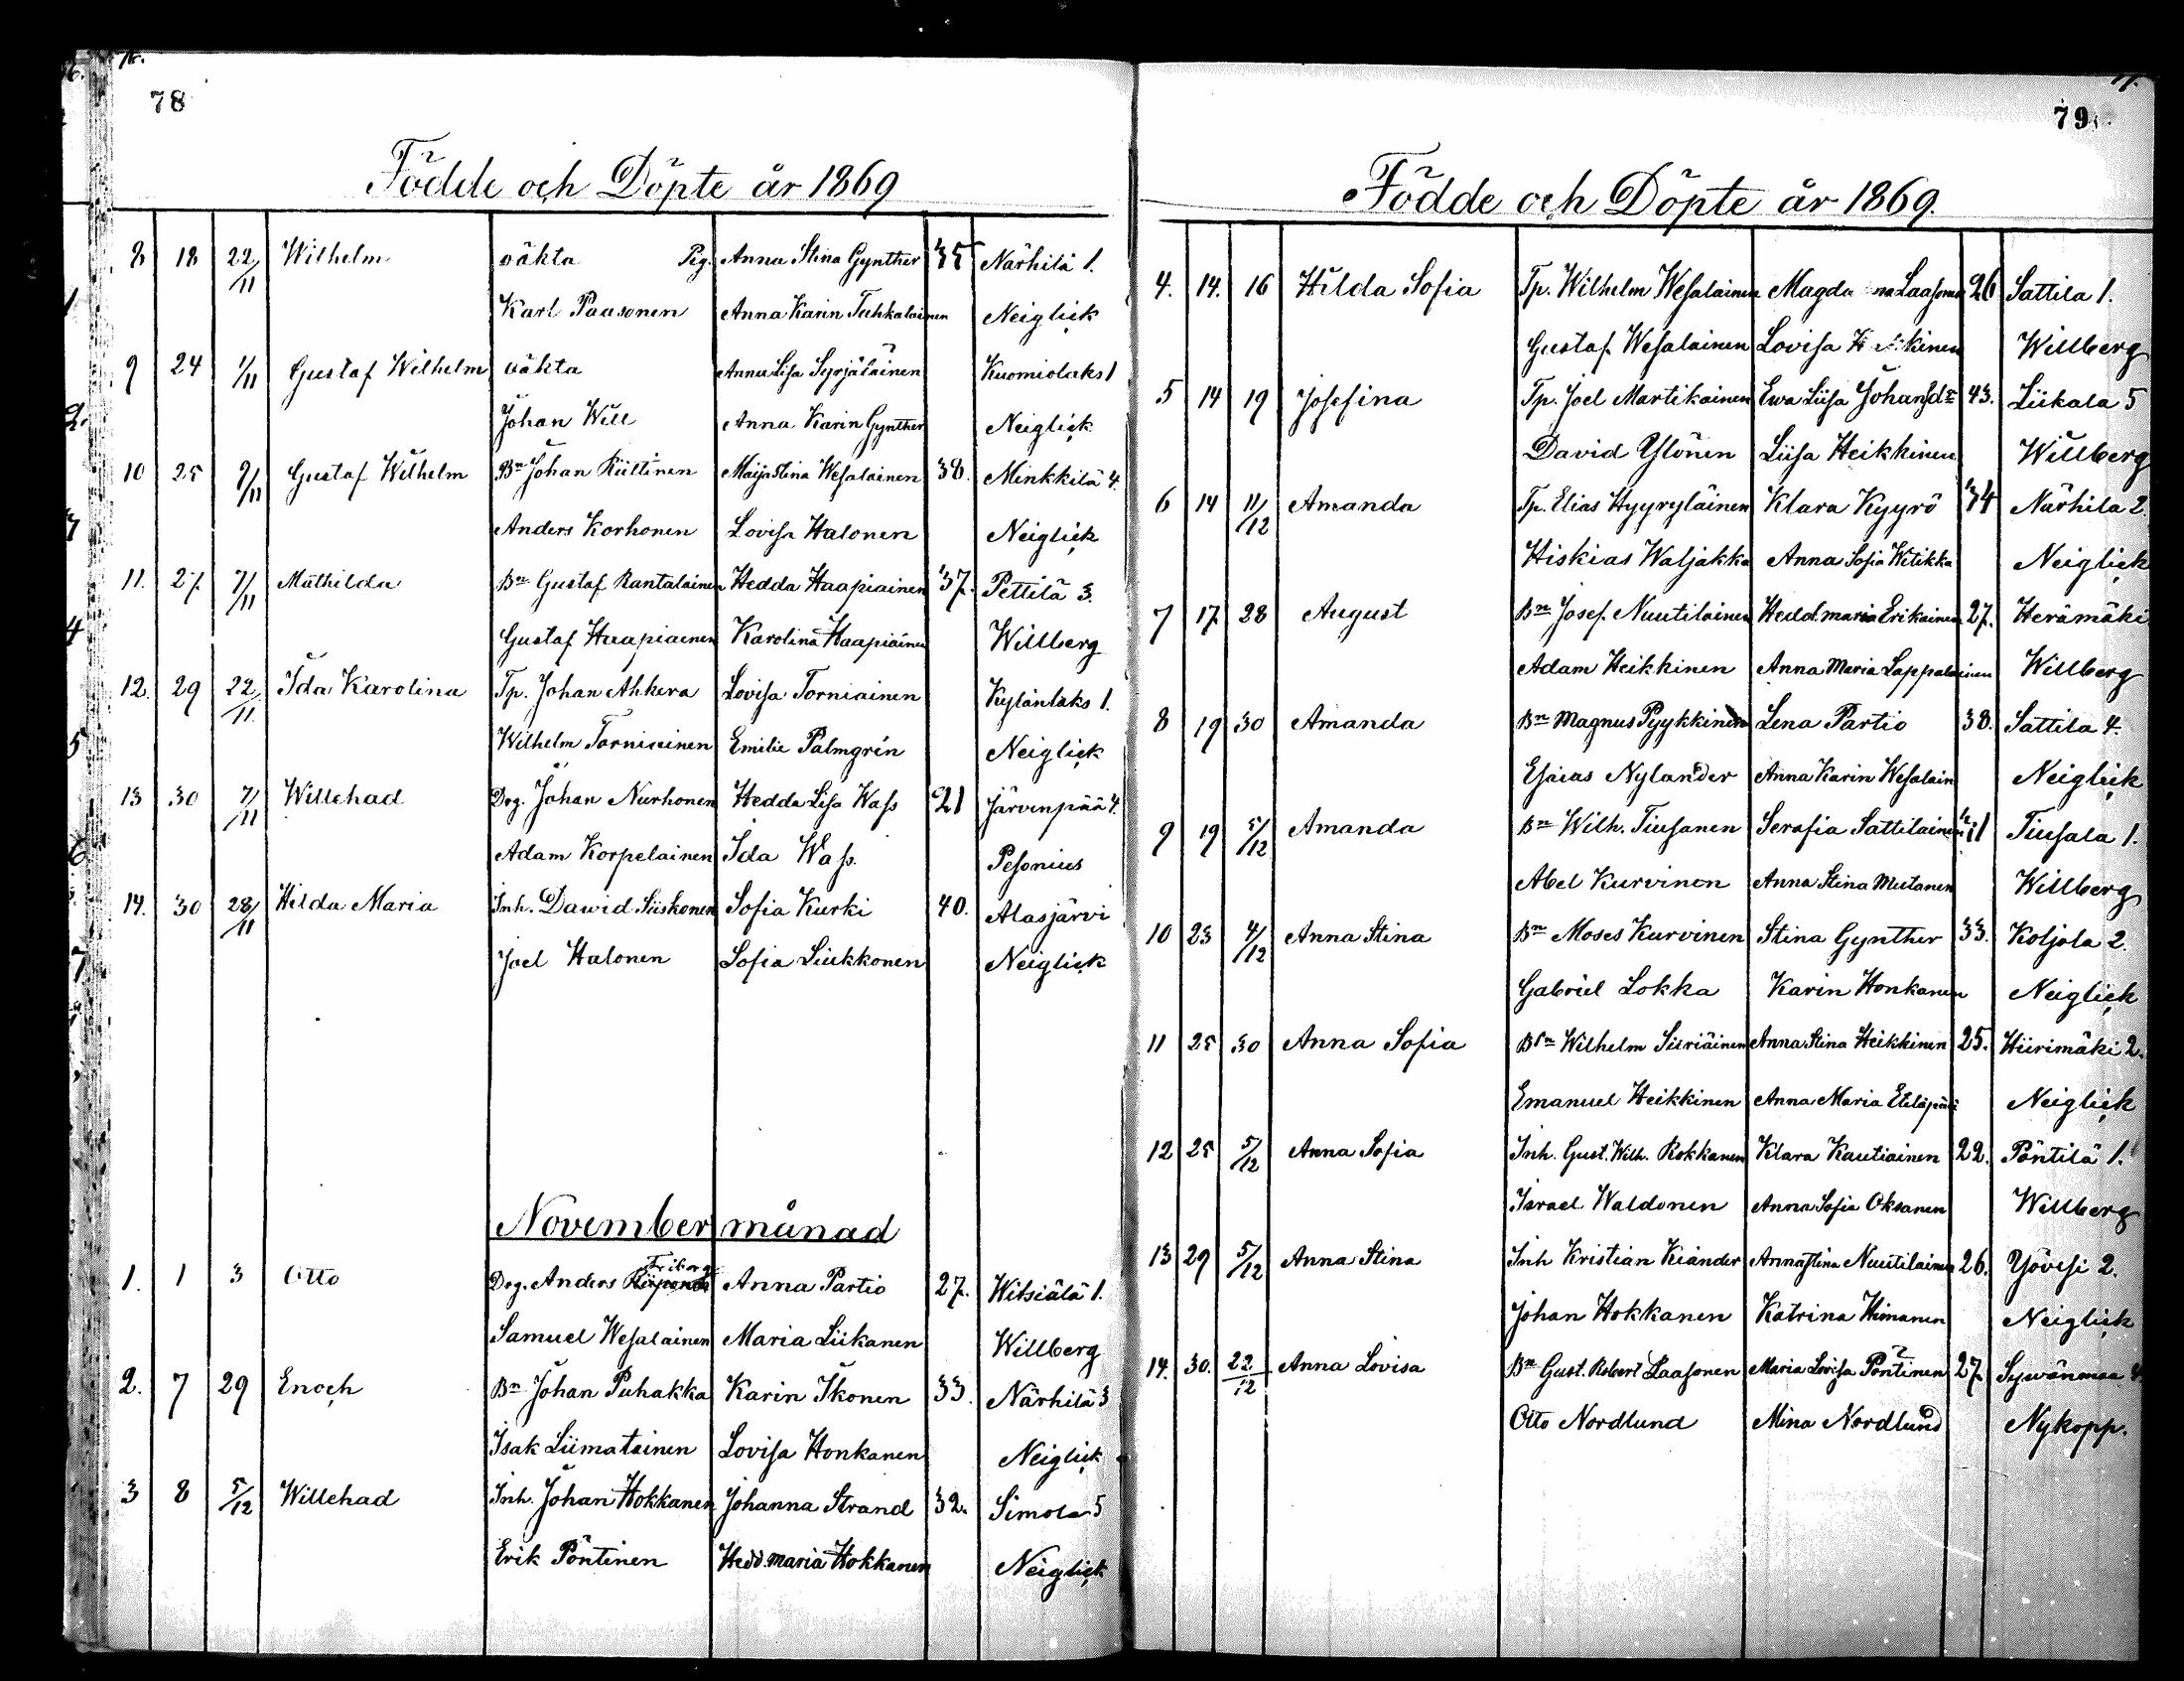 78
Födde och Döpte år 1869
8 18 22/11 Wilhelm oäkta Pig. Anna Stina Gynther 35 Närhilä 1.
Karl Paasonen Anna Karin Tuhkalainen Neiglick
9 24 1/11 Gustaf Wilhelm oäkta Anna Lisa Syrjäläinen Kuomiolaks 1
Johan Will Anna Karin Gynther Neiglick
10 25 9/11 Gustaf Wilhelm Bn Johan Riittinen Maija Stina Wesalainen 38. Minkkilä 4.
Anders Korhonen Lovisa Halonen Neiglick
11. 27 7/11 Mathilda Bn Gustaf Rantalainen Hedda Haapiainen 37. Pettilä 3.
Gustaf Haapiainen Karolina Haapiainen Willberg
12. 29 22/11. Ida Karolina Tp. Johan Ahkera Lovisa Torniainen Kylänlaks 1.
Wilhelm Torniainen Emilie Palmgrén Neiglick
13 30 7/11 Willehad Drg. Johan Nurhonen Hedda Lisa Wass 21 Järvenpää 4.
Adam Korpelainen Ida Wass. Pesonius
14. 30 28/11 Hilda Maria Inh. Dawid Siiskonen Sofia Kurki 40. Alasjärvi
Joel Halonen Sofia Liukkonen Neiglick
November månad
Friberg
1. 1 3 Otto Drg. Anders Anna Partio 27. Witsiälä 1.
Samuel Wesalainen Maria Liikanen Willberg
2. 7 29 Enoch Bn Johan Puhakka Karin Ikonen 33. Närhilä 3
Isak Liimatainen Lovisa Honkanen Neiglick
3 8 5/12 Willehad Inh. Johan Hokkanen Johanna Strand 32. Simola 5
Erik Pöntinen Hedd. maria Hokkanen Neiglick
79.
Födde och Döpte år 1869.
4. 14. 16 Hilda Sofia Tp. Wilhelm Wesalainen Magda na Laasonen 26 Sattila 1.
Gustaf Wesalainen Lovisa Willberg
5 14 19 Josefina Tp. Joel Martikainen Ewa Liisa Johansdr 43. Liikala 5
David Ylönen Liisa Heikkinen Willberg
6 14 11/12 Amanda Tp. Elias Hyyryläinen Klara Kyyrö 34 Närhilä 2.
Hiskias Waljakka Anna Sofia Witikka Neiglick
7 17 28 August Bn Josef. Nuutilainen Hedd. maria Erikainen 27. Herämäki
Adam Heikkinen Anna Maria Lappalainen Willberg
8 19 30 Amanda Bn Magnus Pyykkinen Lena Partio 38. Sattila 4.
Esaias Nylander Anna Karin Wesalain Neiglick
9 19 5/12 Amanda Bn Wilh. Tiusanen Serafia Sattilainen 41 Tiusala 1.
Abel Kurvinen Anna Stina Mutanen Willberg
10 23 4/12 Anna Stina Bn Moses Kurvinen Stina Gynther 33. Koljola 2.
Gabriel Lokka Karin Honkanen Neiglick
11 25 30 Anna Sofia Bsn Wilhelm Siiriäinen Anna Stina Heikkinen 25. Hiirimäki 2.
Emanuel Heikkinen Anna Maria Eteläpää Neiglick
12 25 5/12 Anna Sofia Inh. Gust. Wilh. Rokkanen Klara Kautiainen 22. Pöntilä 1.
Israel Waldonen Anna Sofia Oksanen Willberg
13 29 5/12 Anna Stina Inh Kristian Kiander Anna Stina Nuutilainen 26. Yövesi 2.
Johan Hokkanen Katrina Himanen Neiglick
14. 30. 22/12 Anna Lovisa Bn Gust. Robert Laasonen Maria Lovisa Pöntinen 27. Sywänmaa 4.
Otto Nordlund Mina Nordlund Nykopp.